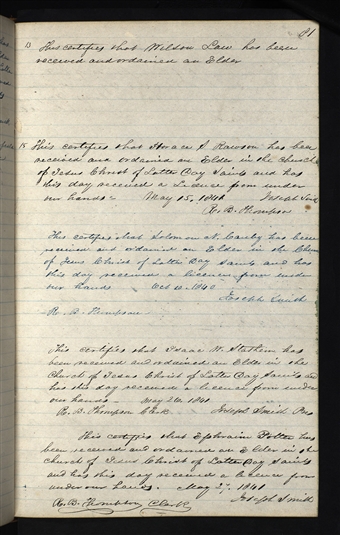 91
13 This certifies that Weldon Law has been
received and ordained an Elder
15 This certifies that Horace S Rawson has been
received and ordained an Elder in the church
of Jesus Christ of Latter Day Saints and has
this day received a Licence from under
our hands - May 15, 1841 Joseph Smith
R. B. Thompson
This certifies that Solomon has been
received and ordained an Elder in the Church
of Jesus Christ of Latter Day Saints and has
this day received a licence from under
our hands Oct 10. 1840
Joseph Smith
R. B. Thompson
This certifies that Isaac W.
been received and ordained an Elder in the
Church of Jesus Christ of Latter Day Saints and
has this day received a licence from under
our hands - May 1841
R. B. Thompson Clerk Joseph Smith Pres
This certifies that Ephraim Potter has
been received and ordained an Elder in the
church of Jesus Christ of Latter Day Saints
and has this day received a licence from
under our hands. May 27, 1841
R. B. Thompson Clerk Joseph Smith